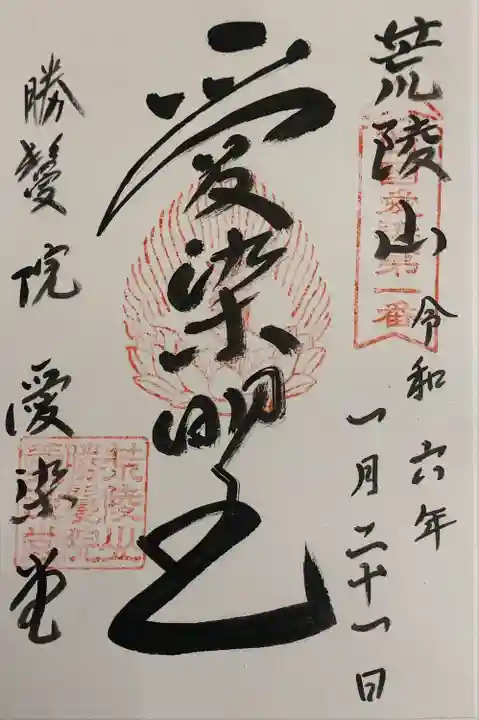 荒陵山
令和六年
一月二十一日
愛染明王
勝鬘院 愛染堂
荒陵山
勝鬘院
愛染堂